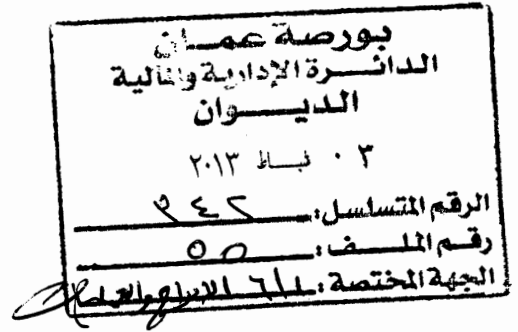 بورصة عمان
الدائرة الإدارية والمالية
الديوان
٠٣ شباط ٢٠١٣
الرقم المتسلسل: ٩٤٢
رقم الملف: ٥٥
الجهة المختصة: الإدراج والعمليات